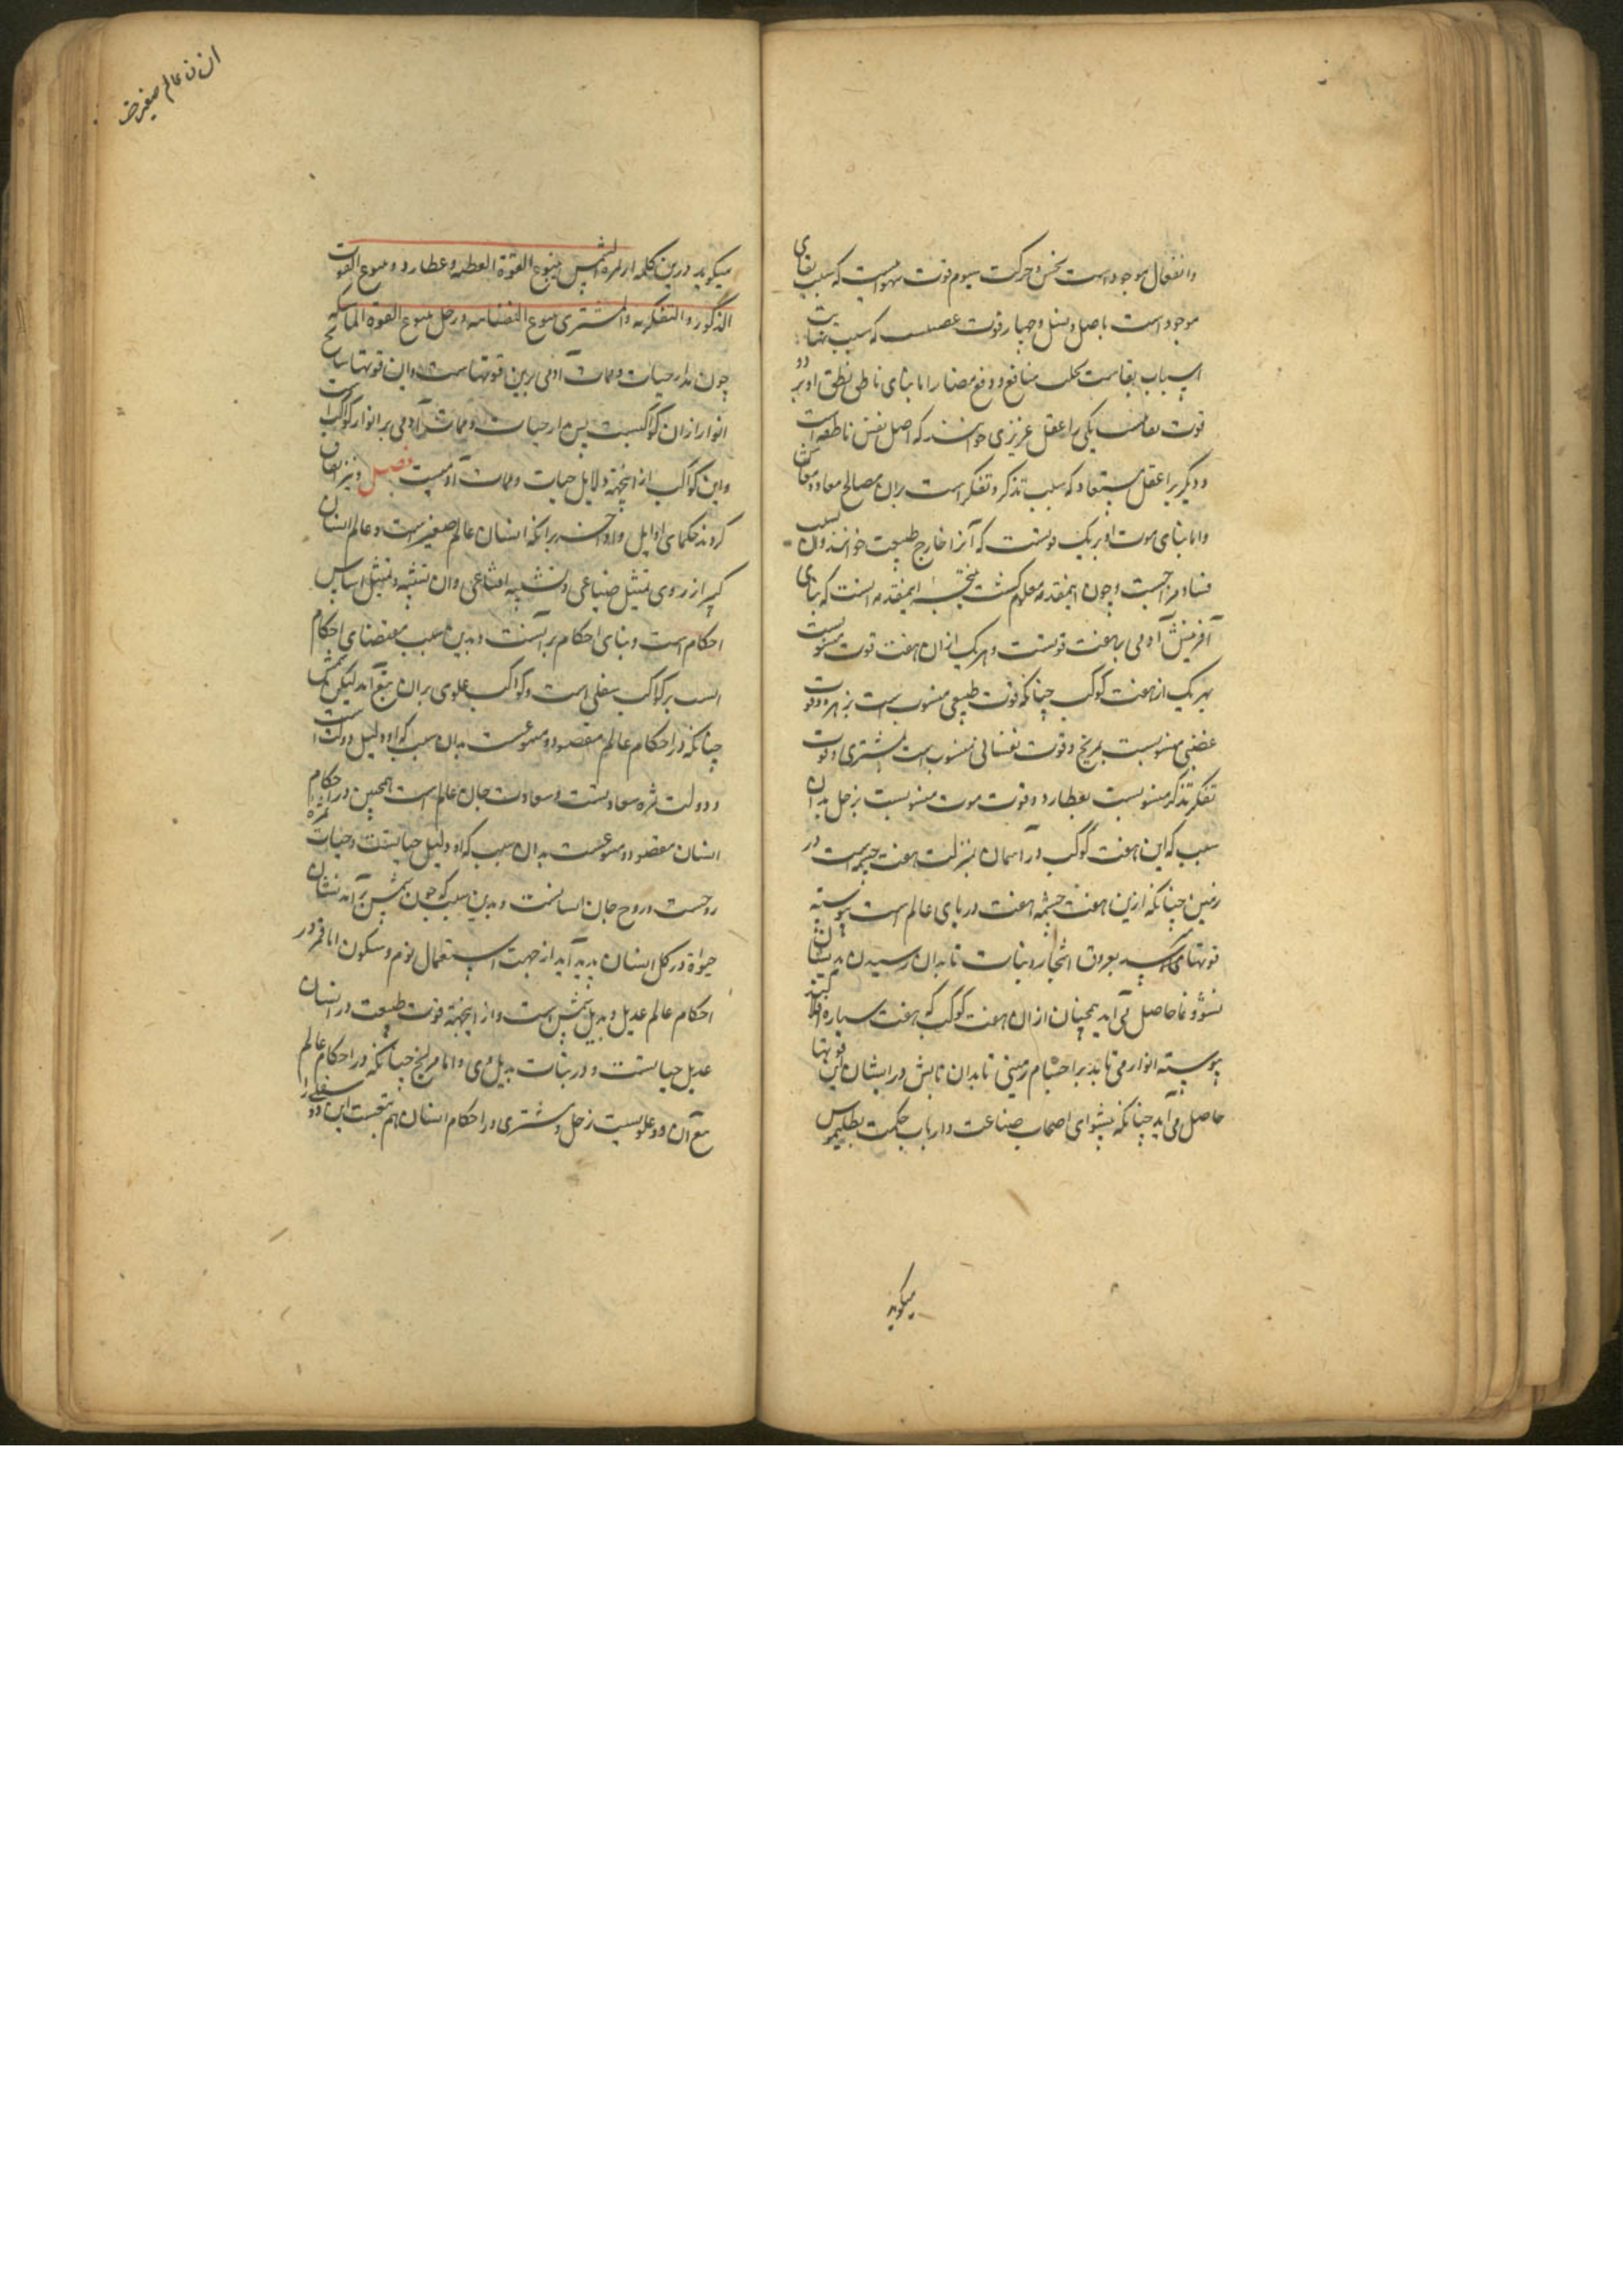 وانفعال موجود است بحس و حرکت سیوم قوت شهوانیست که سبب بقای
موجود است باصل و نسل و چهار قوت که سبب ثبات
اسباب بقاست بجلب منافع و دفع مضار اما بنای ناطقی نطق او بر دو
قوت یکی را عقل غریزی خوانند که اصل نفس ناطقه است
و دیگر را عقل مستفاد که سبب تذکر و تفکر است بران مصالح معاد و معاش
و اما بنای موت او بر یک قوتست که آنرا خارج طبیعت خوانند و آن سبب
فساد مزاجست و چون اینمقدمه معلوم گشت نتیجه اینمقدمه آنست که بنای
آفرینش آدمی بر هفت قوتست و هر یک ازان هفت قوت منسوبست
بهر یک از هفت کوکب چنانکه قوت طبیعی منسوب است بزهره و قوت
غضبی منسوبست بمریخ و قوت نفسانی منسوب است بمشتری و قوت
تفکر و تذکر منسوبست بعطارد و قوت موت منسوبست بزحل بدان
سبب که این هفت کوکب در آسمان بمنزلت هفت چشمه است در
زمین چنانکه ازین هفت چشمه هفت دریای عالم است پیوسته
قوتها میرسد بعروق اشجار و نبات تا بدان رسیدن بدیشان
نشو و نما حاصل می آید همچنان ازان هفت کوکب که هفت سیاره اند
پیوسته انوار می تابد بر اجسام زمینی تا بدان تابش در ایشان این قوتها
حاصل می آید چنانکه پیشوای اصحاب صناعت و ارباب حکمت بطلیموس
میگوید
انسان عالم صغیر است
میگوید درین کلمه الشمس ینبوع القوة و عطارد ینبوع القوت
الذکور و التفکریه و المشتری ینبوع النفسانیه و زحل ینبوع القوة الماسکه
چون مدار حیات و ممات آدمی برین قوتهاست و این قوتها نتایج
انوار ازان کواکبست پس مدار حیات و ممات آدمی بر انوار کواکب است
و این کواکب از اینجهة دلایل حیات و ممات آدمیست فصل و نیز اتفاق
کردند حکمای اوایل و اواخر برانکه انسان عالم صغیر است و عالم انسان
کبیر از روی تمثیل صناعی و تشبیه اقناعی و آن تشبیه و تمثیل اساس
احکام است و بنای احکام بر آنست و بدین سبب مقتضای احکام
انسب بر کواکب سفلی است و کواکب علوی بران تبع آمد لیکن شمس
چنانکه در احکام عالم مقصود و متبوعست بدان سبب که او دلیل دولت است
و دولت ثمره سعادتست و سعادت جان عالم است همچنین در احکام
انسان مقصود و متبوعست بدان سبب که او دلیل حیاتست و حیات ثمره
روحست و روح جان انسانست و بدین سبب که چون شمس برآمد نشان
حیوة در کل انسان پدید آید از جهت استعمال نوم و سکون اما قمر در
احکام عالم عدیل و بدیل شمس است و از اینجهة قوت طبیعت در انسان
عدیل حیاتست و در نبات بدیل وی و اما مریخ چنانکه در احکام عالم
تبع آن دو علویست زحل و مشتری در احکام انسان هم تبعست این دو سفلی را